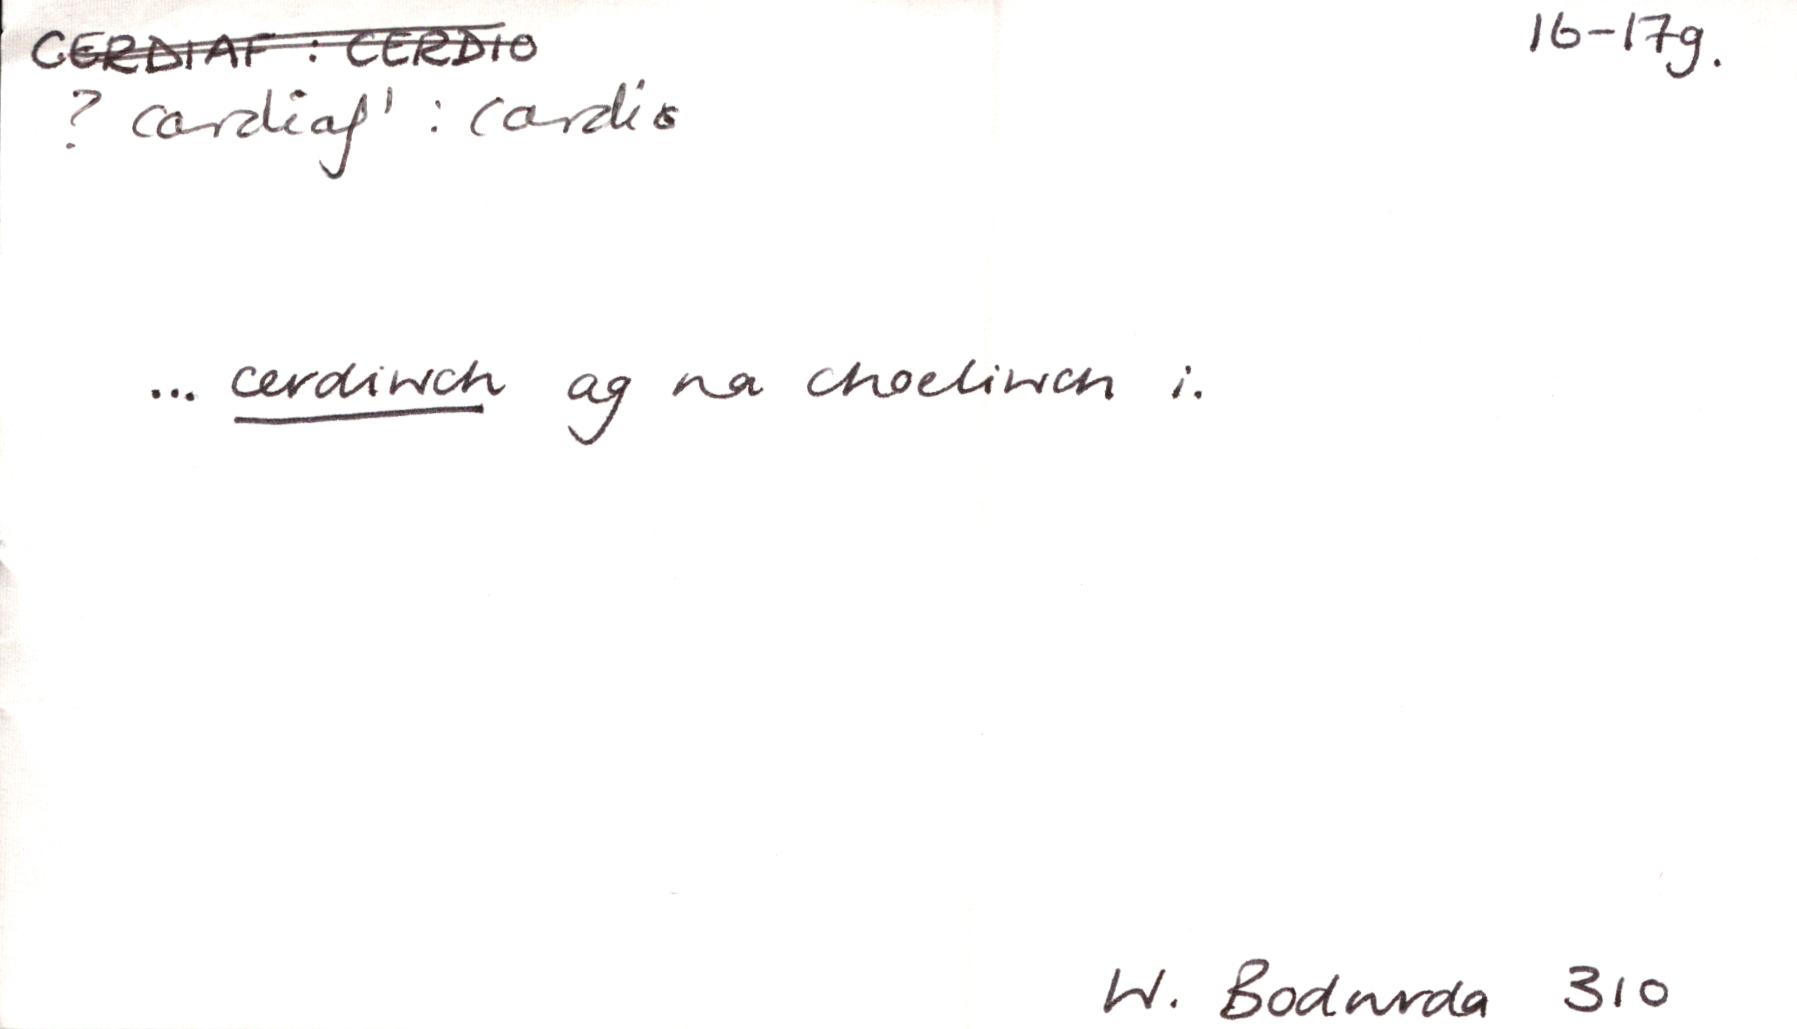 CERDIAF : CERDIO
16-17g.
? cardiaf¹ : cardio
... cerdiwch ag na choeliwch i.
W. Bodwrda 310